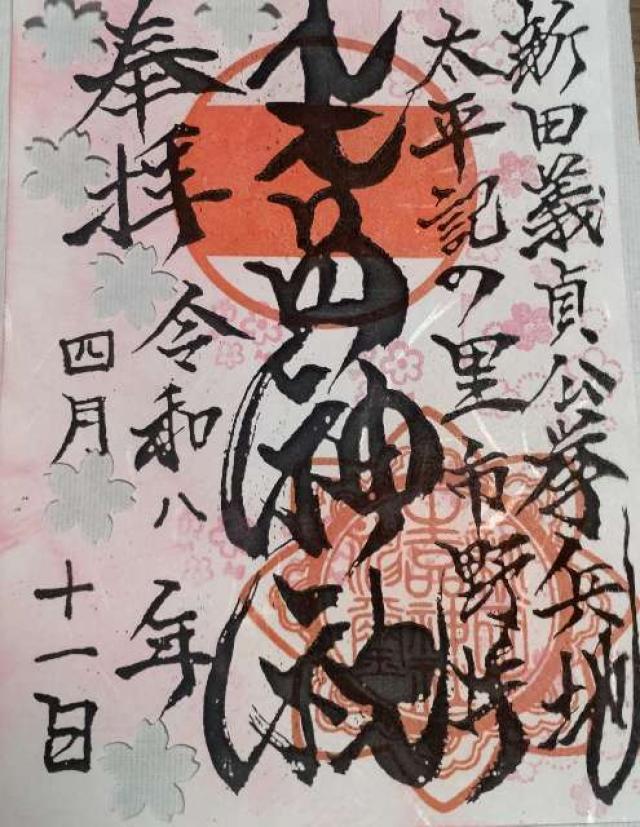 新田義貞公挙兵地
太平記の里 市野井
生品神社
奉拝
令和八年
四月十一日